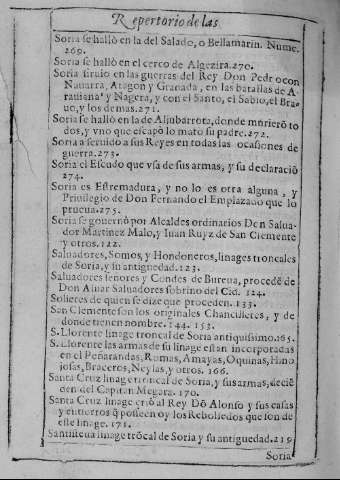 Repertorio de las
Soria se hallò en la del Salado, o Bellamarin. Nume.
269.
Soria se hallò en el cerco de Algezira. 270.
Soria siruio en las guerras del Rey Don Pedro con
Nauarra, Aragon y Granada, en las batallas de A-
rauiana y Nagera, y con el Santo, el Sabio, el Bra-
uo, y los demas. 271.
Soria se hallò en la de Aljubarrota, donde muriero to
dos, y vno que escapò lo matò su padre. 272.
Soria a seruido a sus Reyes en todas las ocasiones de
guerra. 273.
Soria el Escudo que vsa de sus armas, y su declaraciō
274.
Soria es Estremadura, y no lo es otra alguna, y
Priuilegio de Don Fernando el Emplazado que lo
prueua. 275.
Soria se gouernò por Alcaldes ordinarios Don Salua-
dor Martinez Malo, y Iuan Ruyz de San Clemente
y otros. 122.
Saluadores, Somos, y Hondoneros, linages troncales
de Soria, y su antiguedad. 123.
Saluadores señores y Condes de Bureua, procedē de
Don Aluar Saluadores sobrino del Cid. 124.
Solieres de quien se dize que proceden. 133.
San Clemente son los originales Chancilleres, y de
donde tienen nombre. 144. 153.
S. Llorente linage troncal de Soria antiquissimo. 165.
S. Llorente las armas de su linage estan incorporadas
en el Peñarandas, Ramas, Amayas, Oquinas, Hino
josas, Braceros, Neylas, y otros. 166.
Santa Cruz linage troncal de Soria, y sus armas, deciē
den del Capitan Megara. 170.
Santa Cruz linage criò al Rey Dō Alonso y sus casas
y entierros q̃ posseen oy los Rebolledos que son de
este linage. 171.
Santisteua linage trōcal de Soria y su antiguedad. 219
Soria